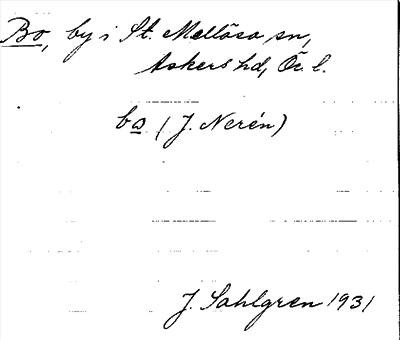 Bo, by i St. Mellösa sn,
Askers hd, Ör. l.
bo (J. Nerén)
J. Sahlgren 1931